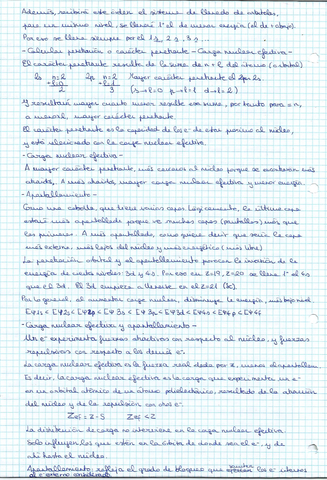 Además, recibirá este orden el sistema de llenado de orbitales,
para un mismo nivel, se llenará 1º el de menor energía (el de + abajo).
Por eso se llena siempre por el 1s, 2s, 3s...
- Calcular penetración o carácter penetrante - Carga nuclear efectiva -
El carácter penetrante resulta de la suma de n + l del átomo (orbital)
2s n=2 2p n=2 Mayor carácter penetrante el 2p 2s
+l=0 +l=1
2 3 (s→l=0 p→l=1 d→l=2)
Y resultará mayor cuanto menor resulte esa suma, por tanto para = n,
a menor l, mayor carácter penetrante.
El carácter penetrante es la capacidad de los e⁻ de estar próximo al núcleo,
y está relacionado con la carga nuclear efectiva.
- Carga nuclear efectiva -
A mayor carácter penetrante, más cercano al núcleo porque se encuentran más
atraídos, A más atraído, mayor carga nuclear efectiva y menor energía.
- Apantallamiento -
Como una cebolla, que tiene varias capas. Lógicamente, la última capa
estará más apantallada porque ve muchas capas (pantallas) más que
las primeras. A más apantallado, como quiere decir que sería la capa
más externa: más lejos del núcleo y más energético (más libre)
La penetración orbital y el apantallamiento provocan la inversión de la
energía de ciertos niveles: 3d y 4s. Por eso en Z=19, Z=20 se llena 1º el 4s
que el 3d. El 3d empieza a llenarse en el Z=21 (Sc).
Por lo general, al aumentar carga nuclear, disminuye la energía, más bajo nivel.
- Carga nuclear efectiva y apantallamiento -
Un e⁻ experimenta fuerzas atractivas con respecto al núcleo, y fuerzas
repulsivas con respecto a los demás e⁻.
La carga nuclear efectiva es la fuerza real dada por Z, menos el apantallam.
Es decir, la carga nuclear efectiva es la carga que experimenta un e⁻
en un orbital atómico de un átomo polielectrónico, resultado de la atracción
del núcleo y de la repulsión con otros e⁻.
Zef = Z - S Zef < Z
La distribución de carga no interviene en la carga nuclear efectiva.
Solo influyen los que estén en la órbita de donde sea el e⁻, y de
ahí hasta el núcleo.
Apantallamiento: refleja el grado de bloqueo que los e⁻ internos